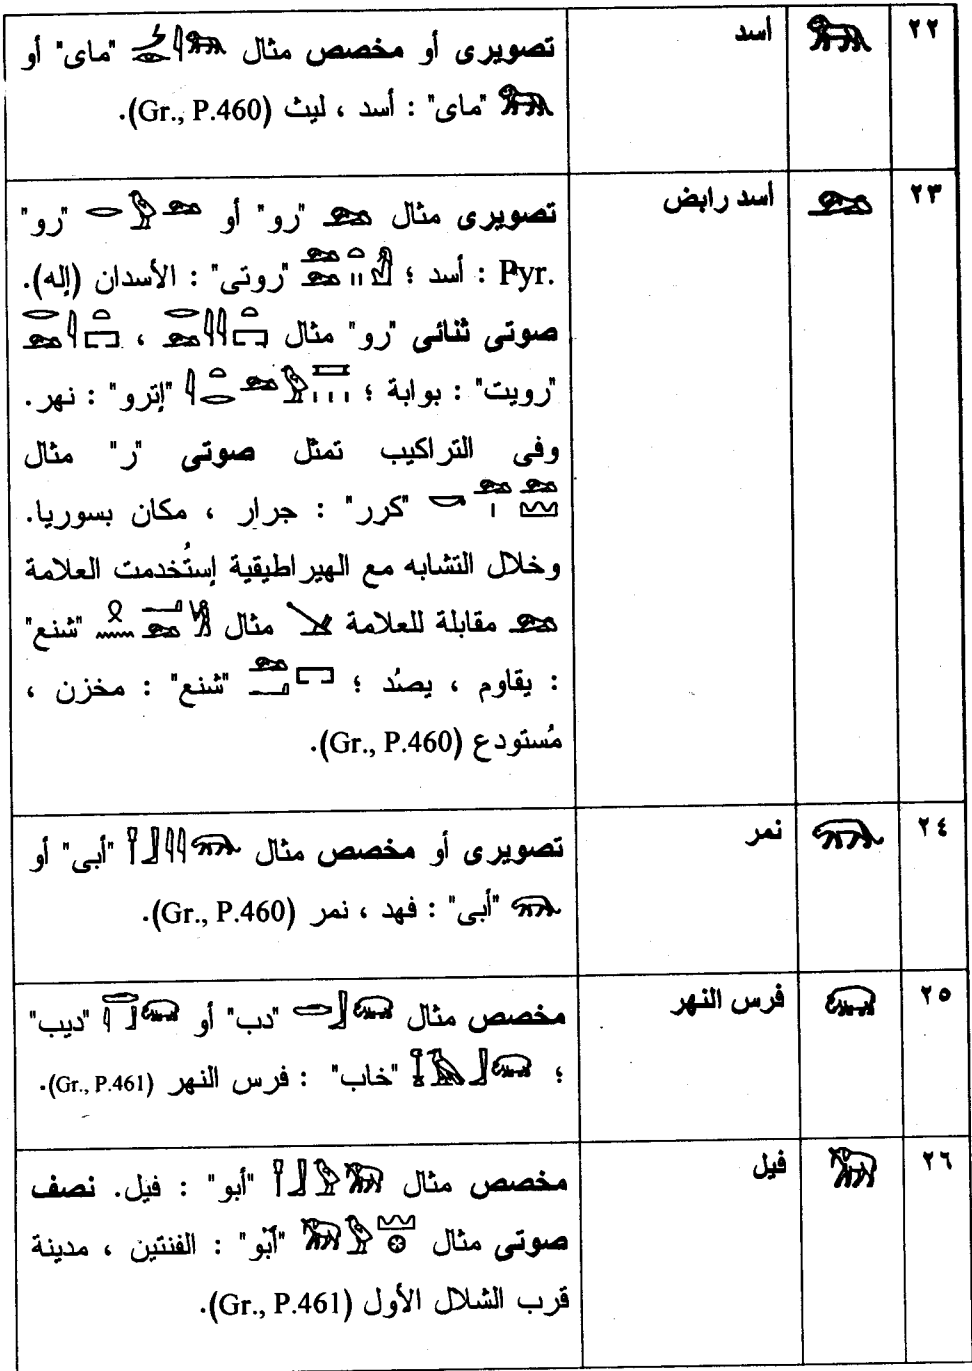 ٢٢ 𓃬 أسد تصويرى أو مخصص مثال 𓌳𓁹𓇋𓃬 "ماى" أو
𓃬 "ماى" : أسد ، ليث (Gr., P.460).
٢٣ 𓃭 أسد رابض تصويرى مثال 𓃭 "رو" أو 𓂋𓅱𓃭 "رو"
Pyr. : أسد ؛ "روتى" : الأسدان (إله).
صوتى ثنائى "رو" مثال ،
"رويت" : بوابة ؛ "إترو" : نهر.
وفى التراكيب تمثل صوتى "ر" مثال
"كرر" : جرار ، مكان بسوريا.
وخلال التشابه مع الهيراطيقية إستُخدمت العلامة
𓃭 مقابلة للعلامة مثال "شنع"
: يقاوم ، يصُد ؛ "شنع" : مخزن ،
مُستودع (Gr., P.460).
٢٤ 𓃮 نمر تصويرى أو مخصص مثال 𓍋𓃀𓇋𓇋𓃮 "أبى" أو
𓃮 "أبى" : فهد ، نمر (Gr., P.460).
٢٥ 𓃯 فرس النهر مخصص مثال 𓂧𓃀𓃯 "دب" أو 𓂧𓇋𓃀𓃯 "ديب"
؛ 𓃀𓃯 "خاب" : فرس النهر (Gr., P.461).
٢٦ 𓃰 فيل مخصص مثال 𓍋𓃀𓅱𓃰 "أبو" : فيل. نصف
صوتى مثال 𓃰𓅱𓈉𓊖 "آبو" : الفنتين ، مدينة
قرب الشلال الأول (Gr., P.461).